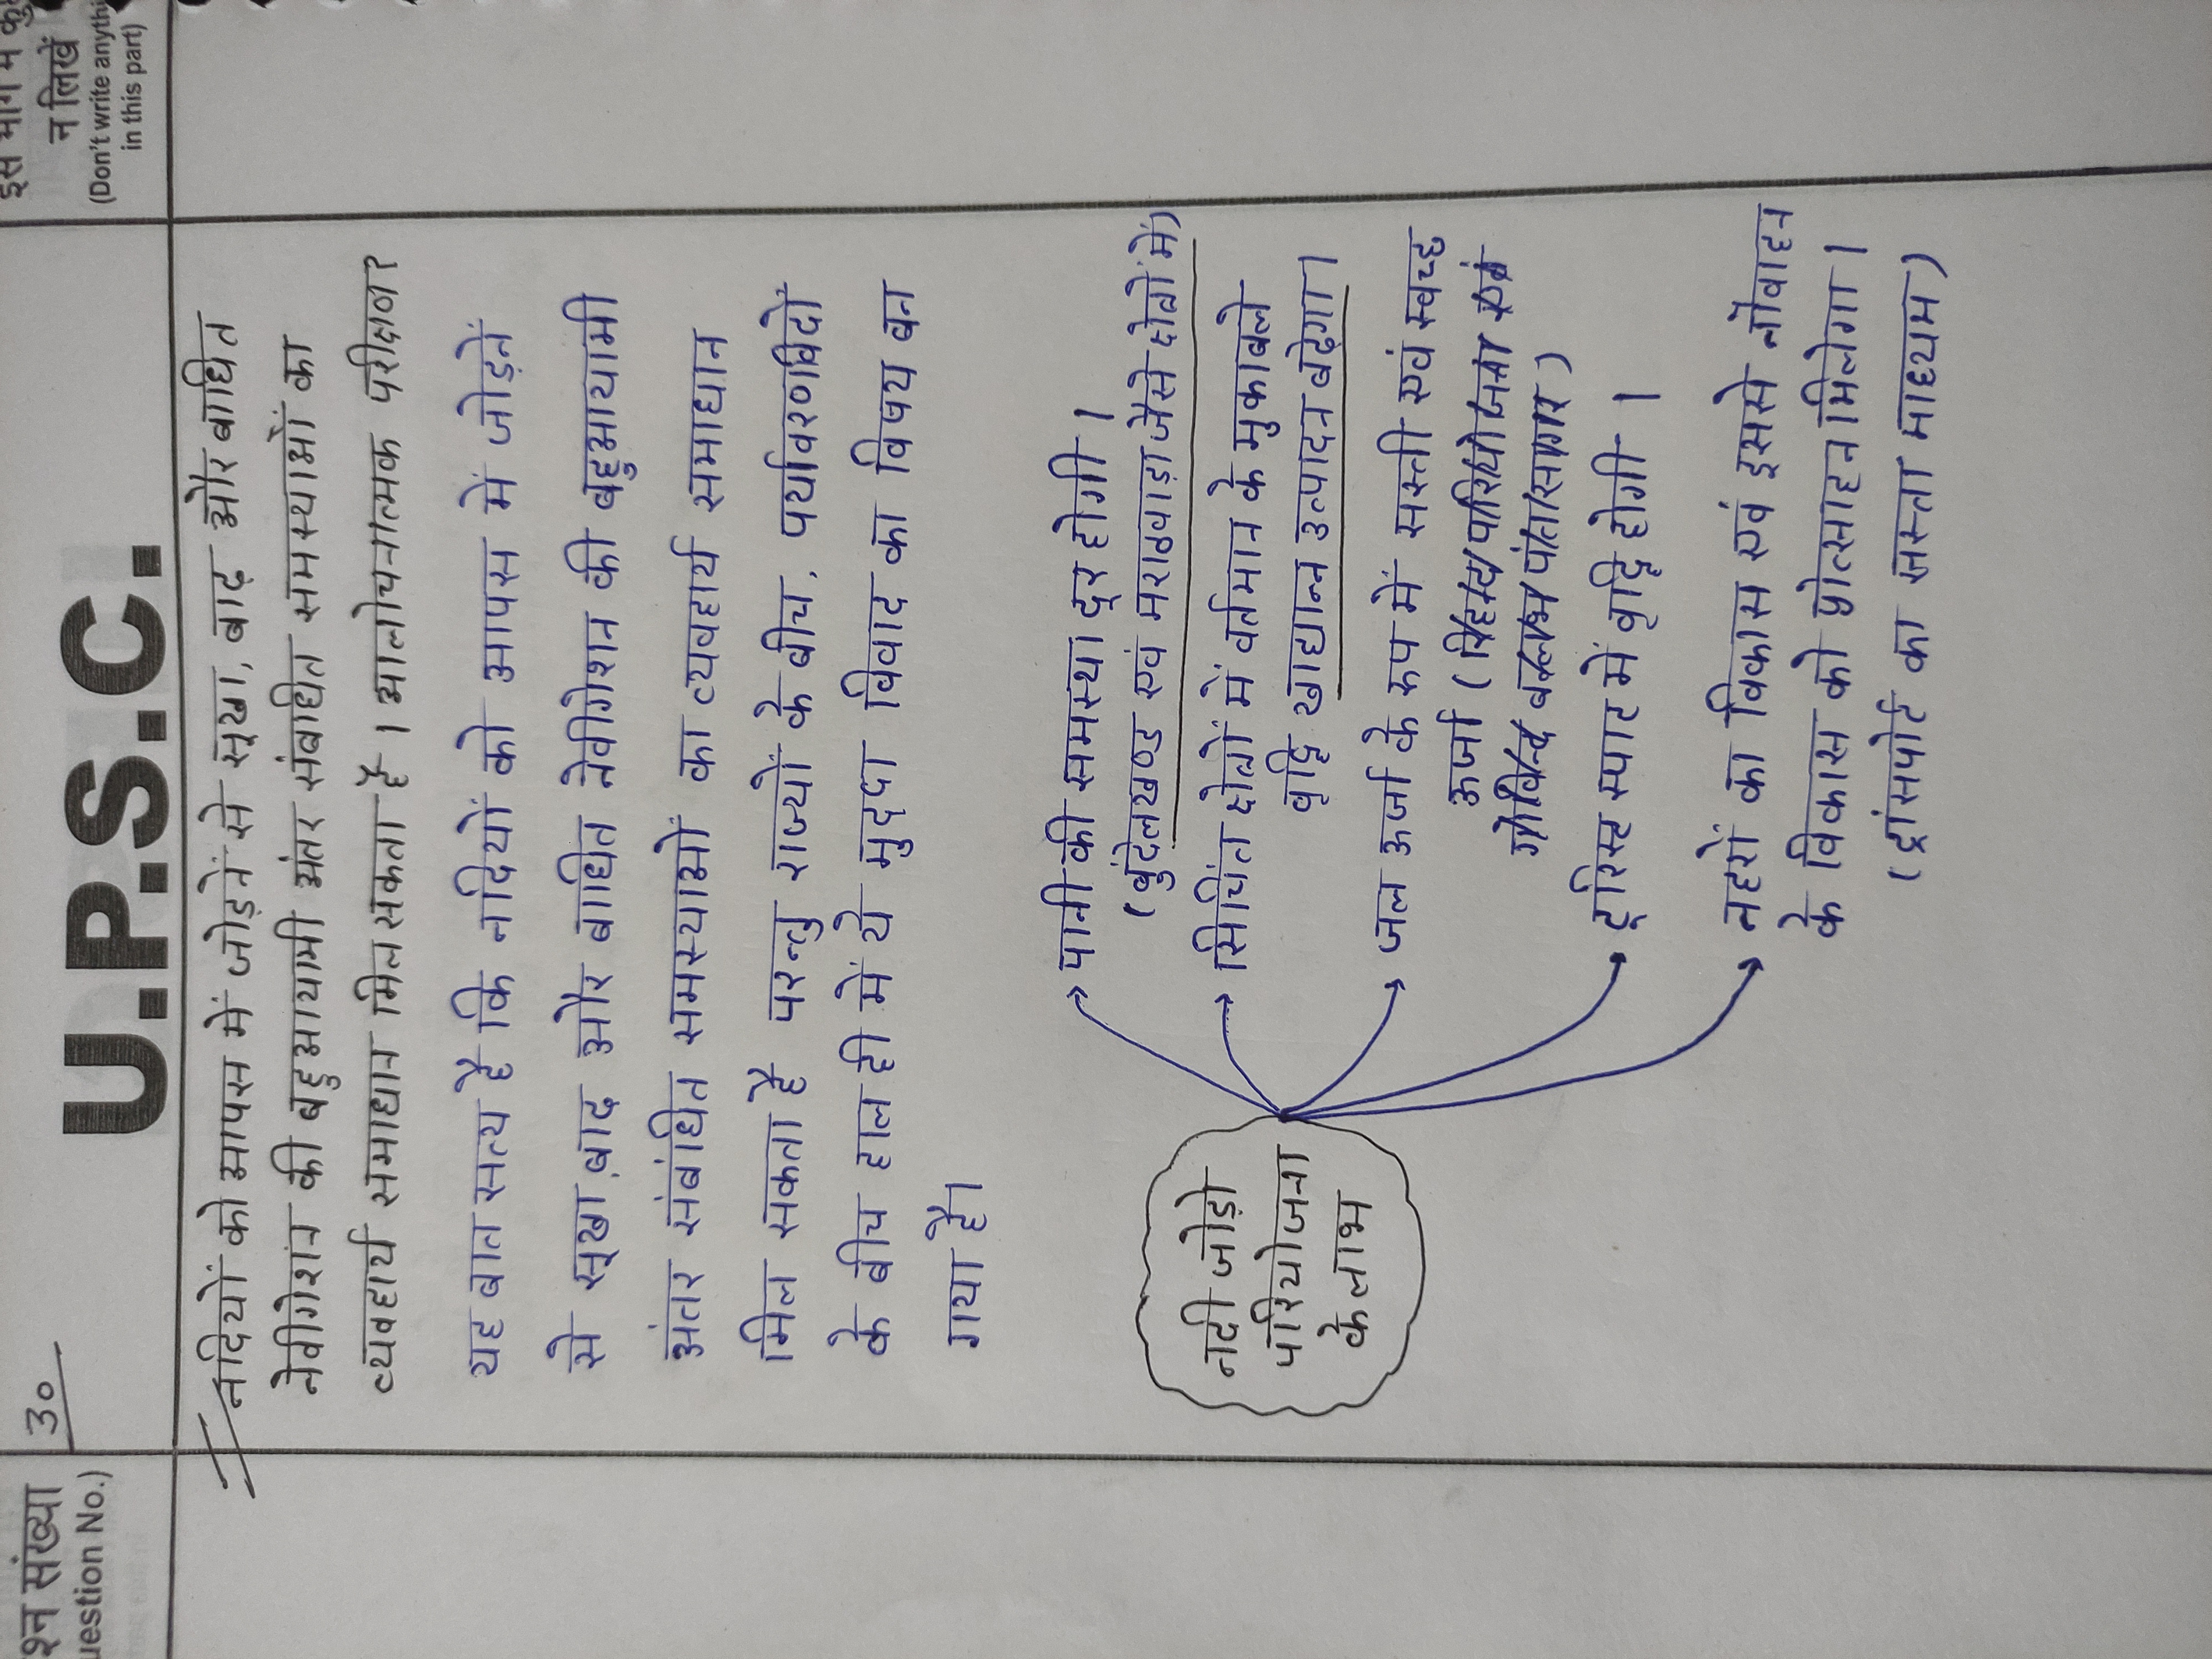 इस भाग में कु
न लिखें
(Don't write anythi
in this part)
श्न संख्या
uestion No.)
30
U.P.S.C.
नदियों को आपस में जोड़नें से सूखा, बाढ़ और बाधित
नेवीगेशन की बहुआयामी अंतर संबंधित समस्याओं का
व्यवहार्य समाधान मिल सकता है। आलोचनात्मक परीक्षण?
यह बात सत्य है कि नदियों को आपस में जोड़नें
से सूखा, बाढ और बाधित नेवीगेशन की बहुआयामी
अंतर संबंधित समस्याओं का व्यवहार्य समाधान
मिल सकता है परन्तु राज्यों के बीच, पर्यावरणविदों
के बीच हाल ही में ये मुद्दा विवाद का विषय बन
गया है।
नदी जोड़ो
परियोजना
के लाभ
पानी की समस्या दूर होगी।
(बुंदेलखण्ड एवं मराठवाड़ा जैसे क्षेत्रों में)
सिचिंत क्षेत्रों में वर्तमान के मुकाबले
वृद्धि खाद्यान्न उत्पादन बढ़ेगा।
जल ऊर्जा के रुप में सस्ती एवं स्वच्छ
ऊर्जा (रिहन्द परियोजना एवं
गोविन्द बल्लभ पंत सागर)
टूरिस्ट स्पाट में वृद्धि होगी।
नहरों का विकास एवं इससे नौवाहन
के विकास को प्रोत्साहन मिलेगा।
(ट्रांसपोर्ट का सस्ता माध्यम)